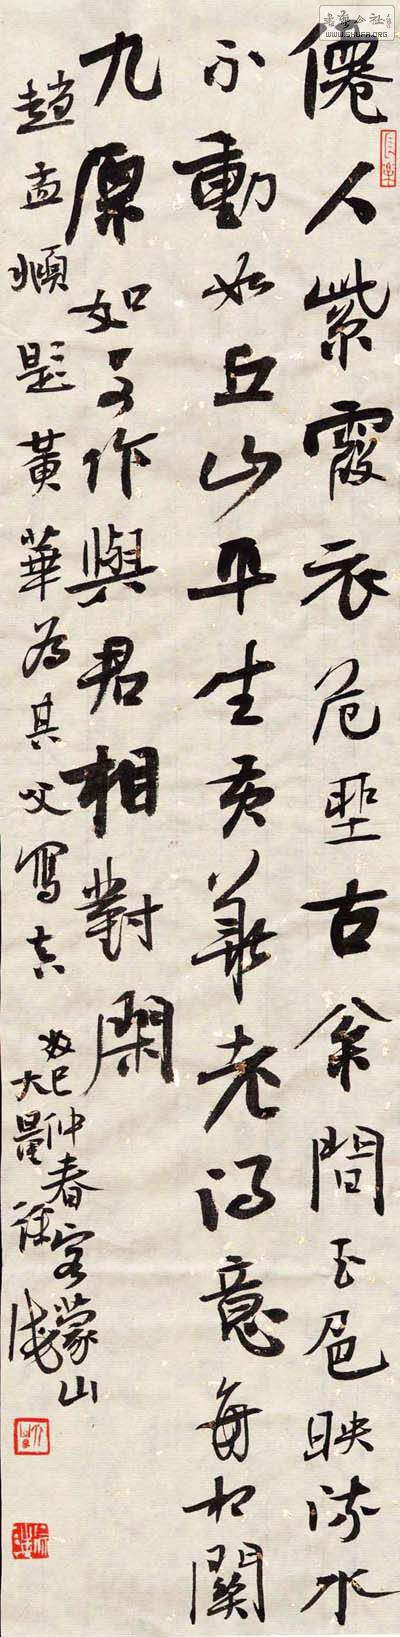 僊人紫霞衣危坐古枀間玉色映流水
不動如丘山平生黃華老得意每相關
九原如可作與君相對閑
趙孟頫題黃華為其父寫真
巳仲春客蒙山
大量徐
長樂
書法公社
WWW.SHUFA.ORG